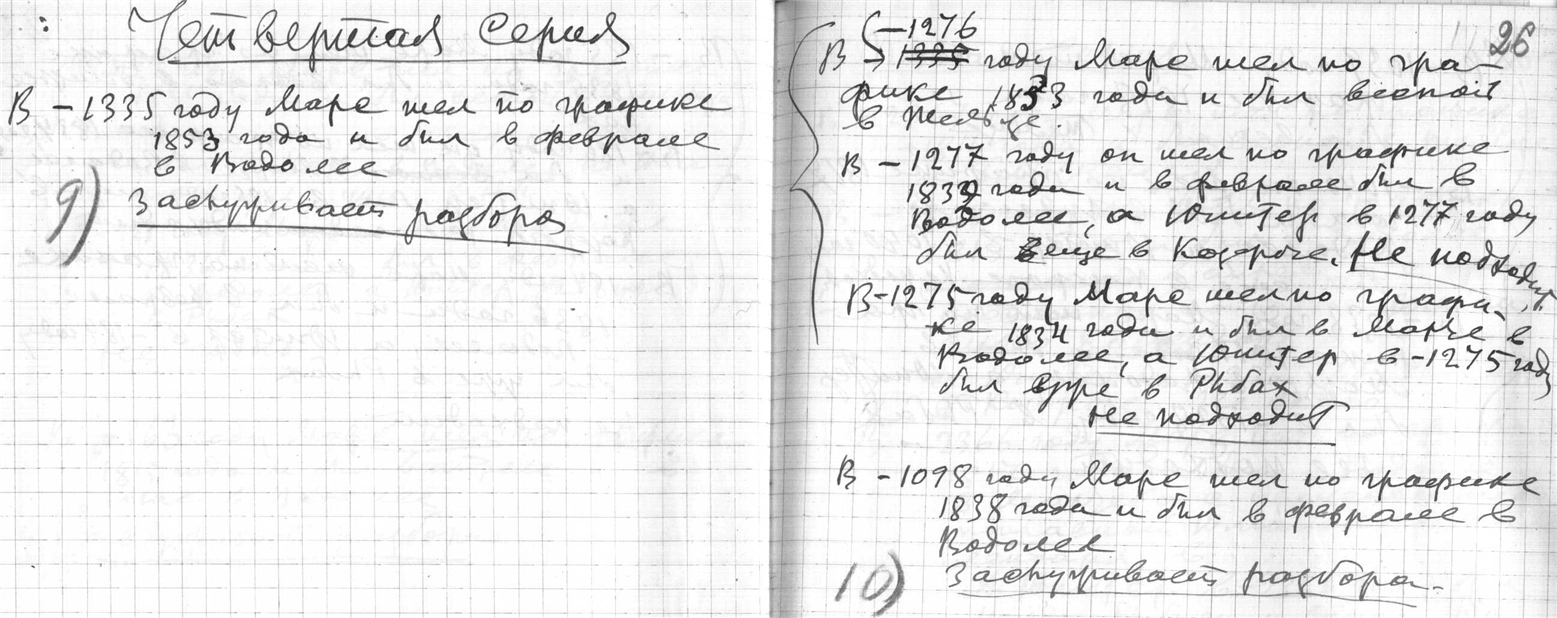 Четвертая серия
В -1335 году Марс шел по графике
1853 года и был в феврале
в Водолее
9) Заслуживает разбора
26
-1276
В 1335 году Марс шел по гра-
фике 1853 года и был весной
в
В -1277 году он шел по графике
1839 года и в феврале был в
Водолее, а Юпитер в 1277 году
был еще в Козероге. Не подходит.
В -1275 году Марс шел по графи-
ке 1834 года и был в Марте в
Водолее, а Юпитер в -1275 году
был уже в Рыбах
Не подходит
В -1098 году Марс шел по графике
1838 года и был в феврале в
Водолее
10) Заслуживает разбора.